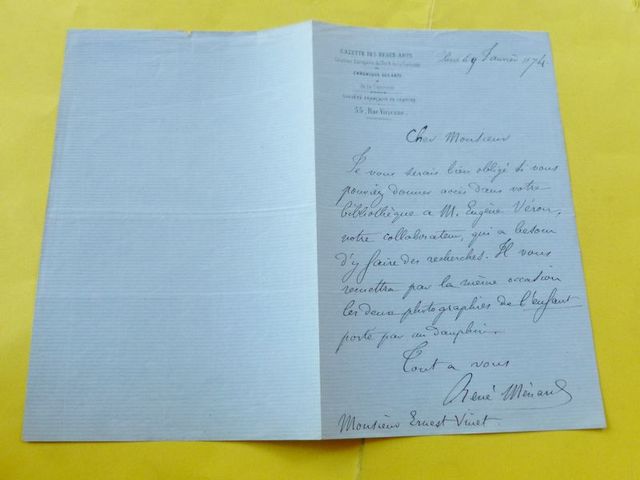 GAZETTE DES BEAUX-ARTS
CHRONIQUE DES ARTS
SOCIÉTÉ FRANÇAISE DE GRAVURE
55, Rue Vivienne.
Paris le 9 Janvier 1874
Cher Monsieur
Je vous serais bien obligé si vous
pouviez donner accès dans votre
bibliothèque a M. Eugène Véron,
notre collaborateur, qui a besoin
d'y faire des recherches. Il vous
remettra par la même occasion
les deux photographies de l'enfant
porté par un dauphin.
Tout a vous
René Ménard
Monsieur Ernest Vinet.